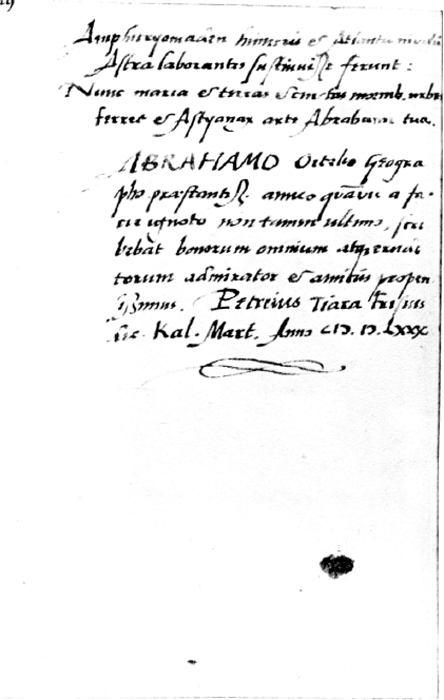 Amphitryoniaden humeris & Atlanta
Astra laborantis sustinuisse ferunt:
Nunc maria & terras & cum
ferret & Astyanax arte Abrahame tua.
ABRAHAMO Ortelio Geogra
pho præstantiss. amico quāvis a fa-
cie ignoto non tamen ultimo, scri
bebāt bonorum omnium atque
torum admirator & amicus propen
sissimus. Petreius Tiara Frisius
Kal. Mart. Anno CIƆ. IƆ. LXXX